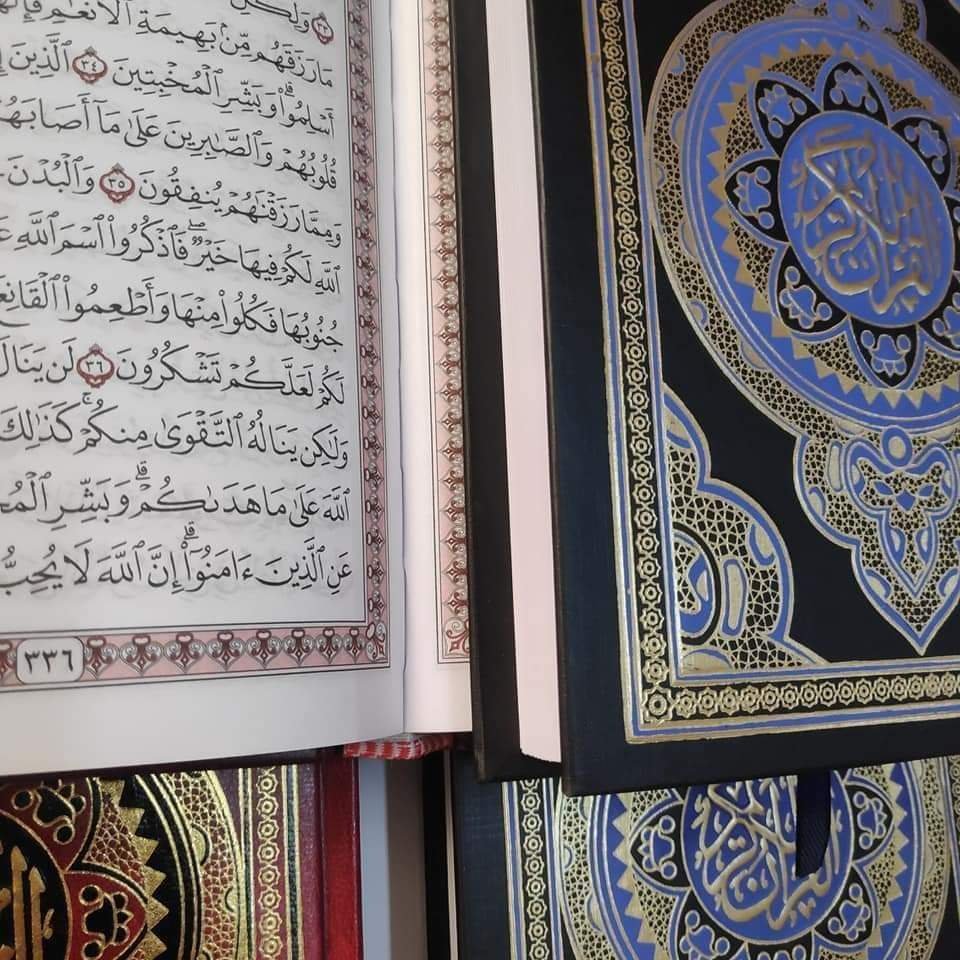 ٣٣ وَلِكُلِّ
مَّا رَزَقَهُم مِّنۢ بَهِيمَةِ ٱلْأَنْعَٰمِ
أَسْلِمُوا۟ ۗ وَبَشِّرِ ٱلْمُخْبِتِينَ ٣٤ ٱلَّذِينَ
قُلُوبُهُمْ وَٱلصَّٰبِرِينَ عَلَىٰ مَآ أَصَابَهُ
وَمِمَّا رَزَقْنَٰهُمْ يُنفِقُونَ ٣٥ وَٱلْبُدْنَ
ٱللَّهِ لَكُمْ فِيهَا خَيْرٌ ۖ فَٱذْكُرُوا۟ ٱسْمَ ٱللَّهِ عَ
جُنُوبُهَا فَكُلُوا۟ مِنْهَا وَأَطْعِمُوا۟ ٱلْقَانِعَ
لَكُمْ لَعَلَّكُمْ تَشْكُرُونَ ٣٦ لَن يَنَالَ
وَلَٰكِن يَنَالُهُ ٱلتَّقْوَىٰ مِنكُمْ ۚ كَذَٰلِكَ
ٱللَّهَ عَلَىٰ مَا هَدَىٰكُمْ ۗ وَبَشِّرِ ٱلْمُحْ
عَنِ ٱلَّذِينَ ءَامَنُوٓا۟ ۗ إِنَّ ٱللَّهَ لَا يُحِبُّ
٣٣٦
القرآن الكريم
القرآن الكريم